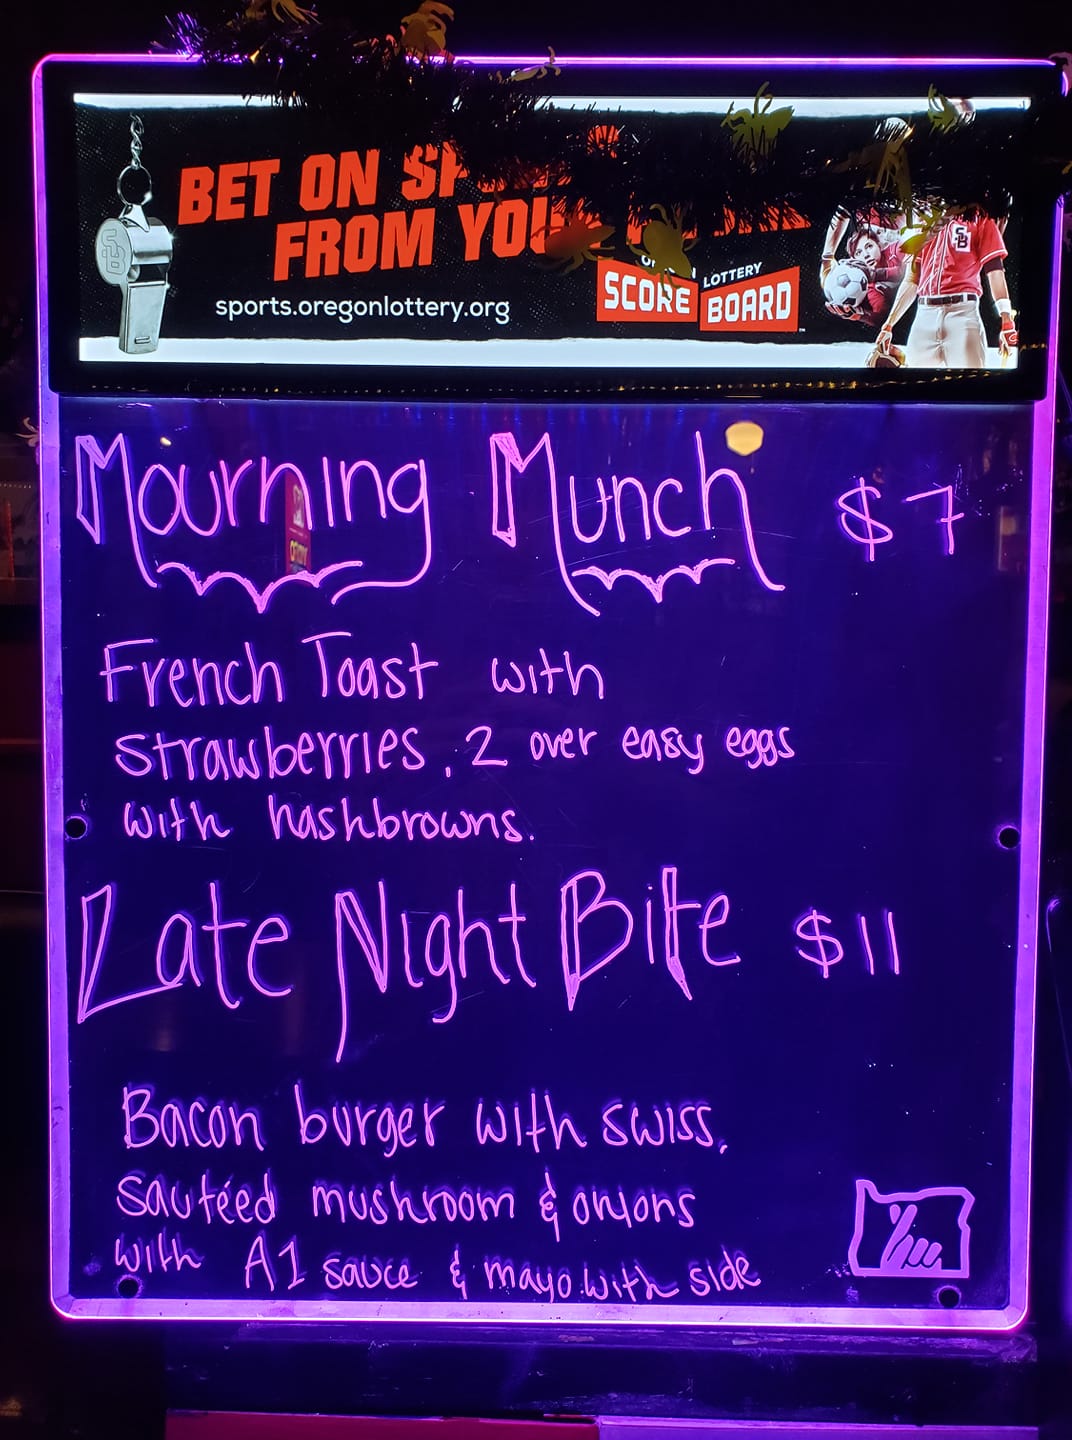 BET ON
FROM
sports.oregonlottery.org
LOTTERY
SCORE BOARD
SB
Mourning Munch $7
French Toast with
strawberries, 2 over easy eggs
with hashbrowns.
Late Night Bite $11
Bacon burger with swiss,
sautéed mushroom & onions
with A1 sauce & mayo with side